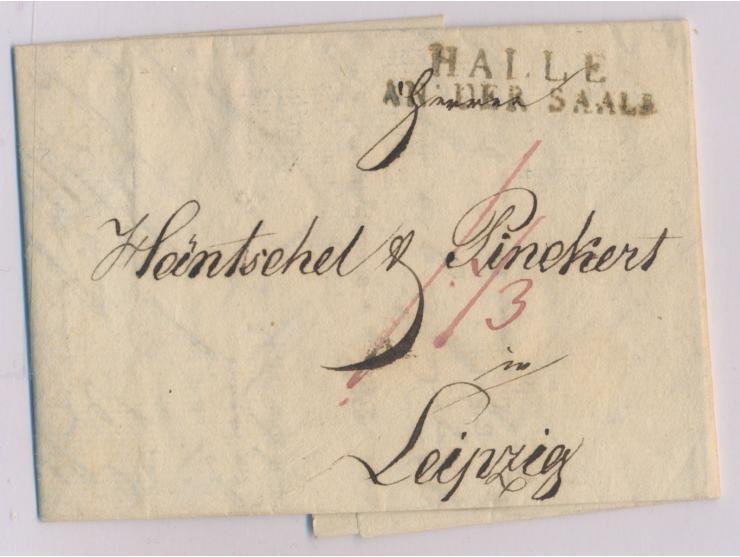 HALLE
AN DER SAALE
Herren
Häntschel & Pinckert
3
in
Leipzig